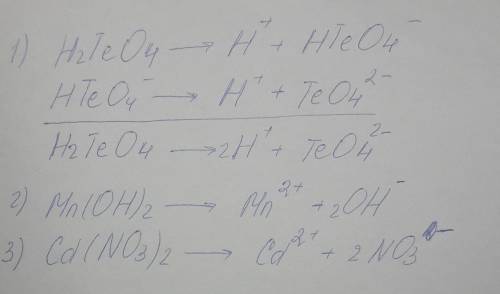 1) H₂TeO₄ → H⁺ + HTeO₄⁻
HTeO₄⁻ → H⁺ + TeO₄²⁻
H₂TeO₄ → 2H⁺ + TeO₄²⁻
2) Mn(OH)₂ → Mn²⁺ + 2OH⁻
3) Cd(NO₃)₂ → Cd²⁺ + 2NO₃⁻